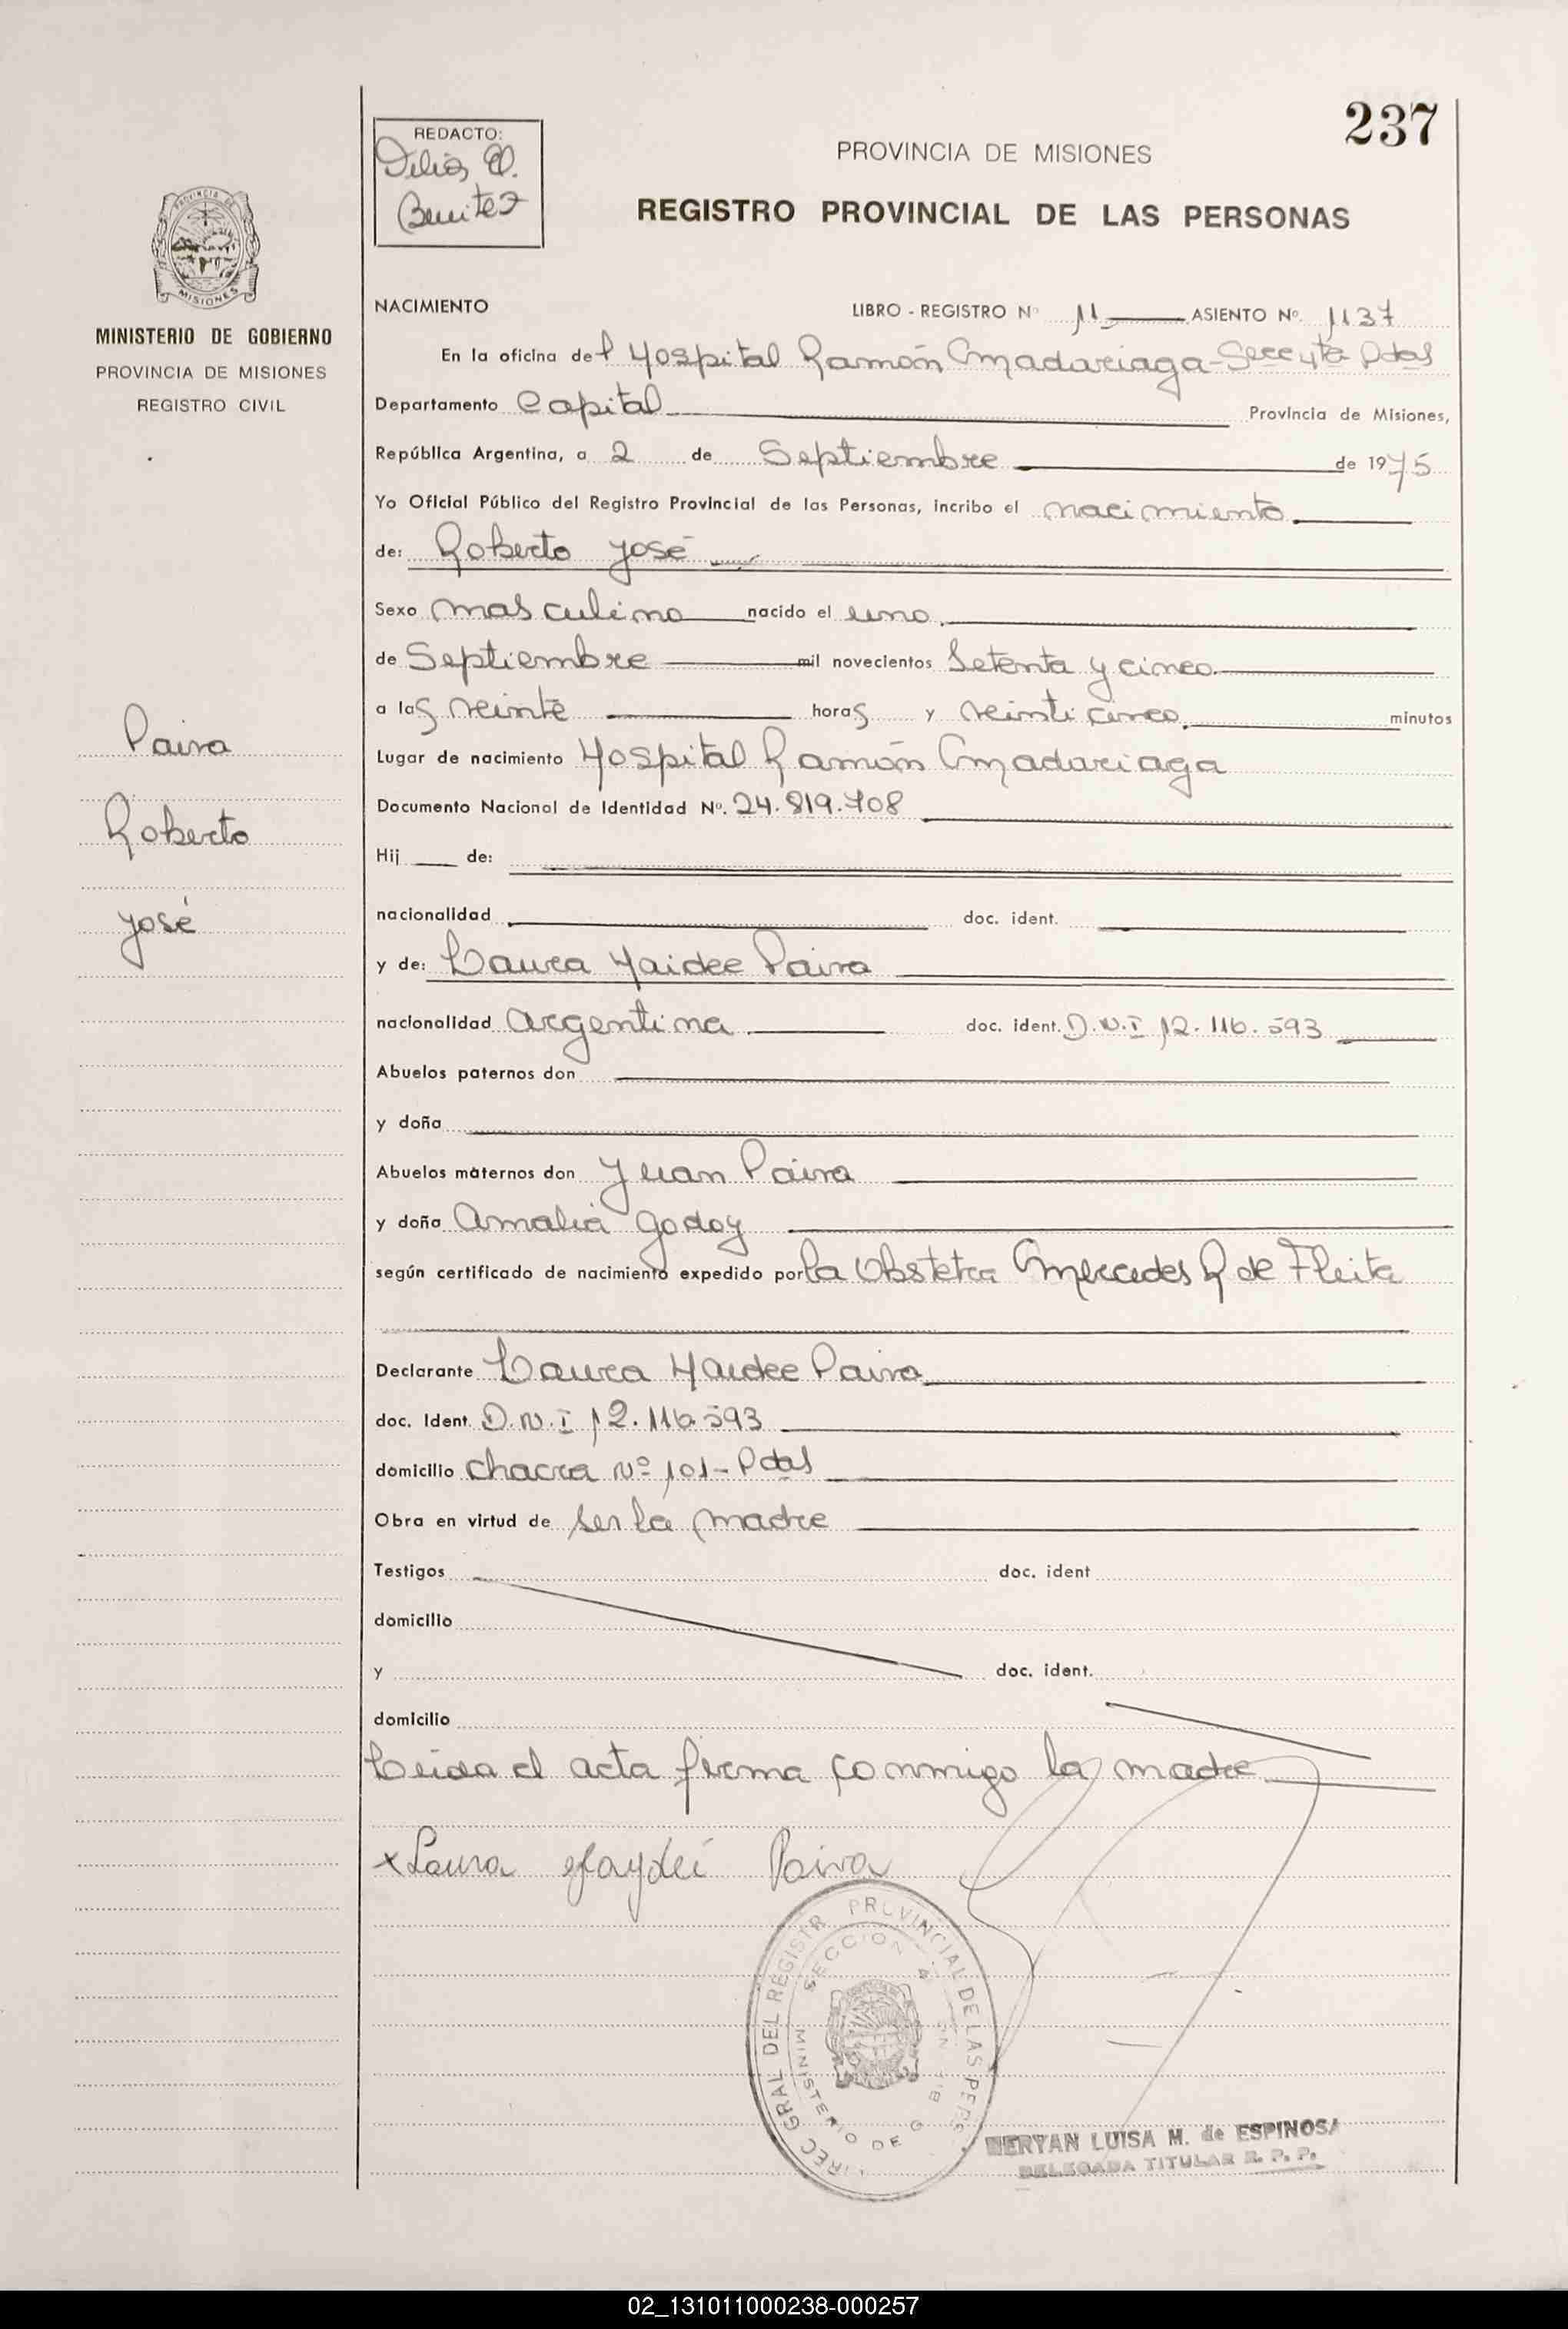 237
REDACTO:
Delia E.
Benitez
PROVINCIA DE MISIONES
REGISTRO PROVINCIAL DE LAS PERSONAS
PROVINCIA DE
MISIONES
MINISTERIO DE GOBIERNO
PROVINCIA DE MISIONES
REGISTRO CIVIL
NACIMIENTO LIBRO - REGISTRO Nº 11 ASIENTO Nº 1137
En la oficina del Hospital Ramón Madariaga - Secc 4ta Pdas
Departamento Capital Provincia de Misiones,
República Argentina, a 2 de Septiembre de 1975
Yo Oficial Público del Registro Provincial de las Personas, incribo el nacimiento
de: Roberto José
Sexo masculino nacido el uno
de Septiembre mil novecientos Setenta y cinco
a las veinte horas y veinticinco minutos
Lugar de nacimiento Hospital Ramón Madariaga
Documento Nacional de Identidad Nº. 24.819.708
Hij de:
nacionalidad doc. ident.
y de: Laura Haidee Paiva
nacionalidad argentina doc. ident. D.N.I 12.116.593
Abuelos paternos don
y doña
Abuelos maternos don Juan Paiva
y doña Amalia Godoy
según certificado de nacimiento expedido por la Obstetra Mercedes R de Fleita
Declarante Laura Haidee Paiva
doc. Ident. D.N.I 12.116.593
domicilio chacra Nº 101 - Pdas
Obra en virtud de ser la madre
Testigos doc. ident
domicilio
y doc. ident.
domicilio
Leida el acta firma conmigo la madre
x Laura Haydeé Paiva
Paiva
Roberto
José
DIREC GRAL DEL REGISTR PROVINCIAL DE LAS PERS
SECCION 4
MINISTERIO DE GOBIERNO
MERYAN LUISA M. de ESPINOSA
DELEGADA TITULAR R. P. P.
02_131011000238-000257